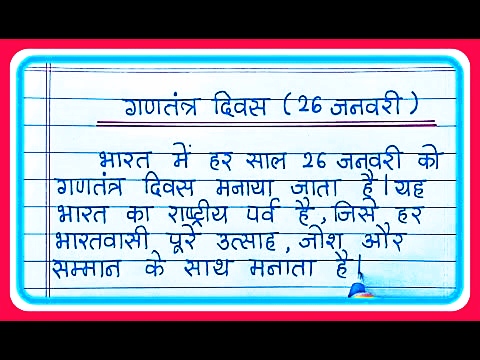 गणतंत्र दिवस ( 26 जनवरी )
भारत में हर साल 26 जनवरी को
गणतंत्र दिवस मनाया जाता है। यह
भारत का राष्ट्रीय पर्व है, जिसे हर
भारतवासी पूरे उत्साह, जोश और
सम्मान के साथ मनाता है।